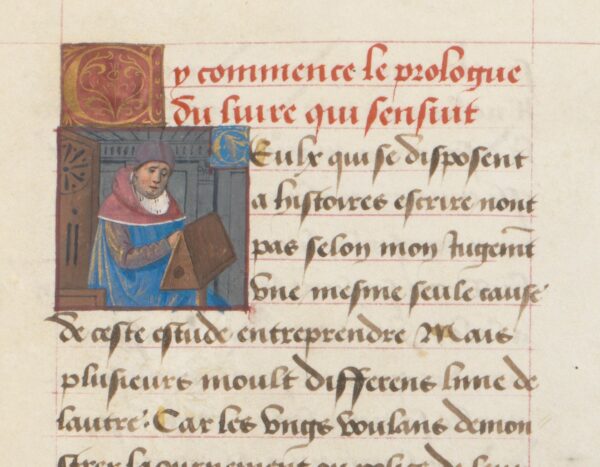 Cy commence le prologue
du liure qui sensiut
Ceulx qui se disposent
a histoires escrire nont
pas selon mon Iugemt
vne mesme seule cause
de ceste estude entreprendre Mais
plusieurs moult differens lune de
lautre. Car les vngs voulans demon
strer